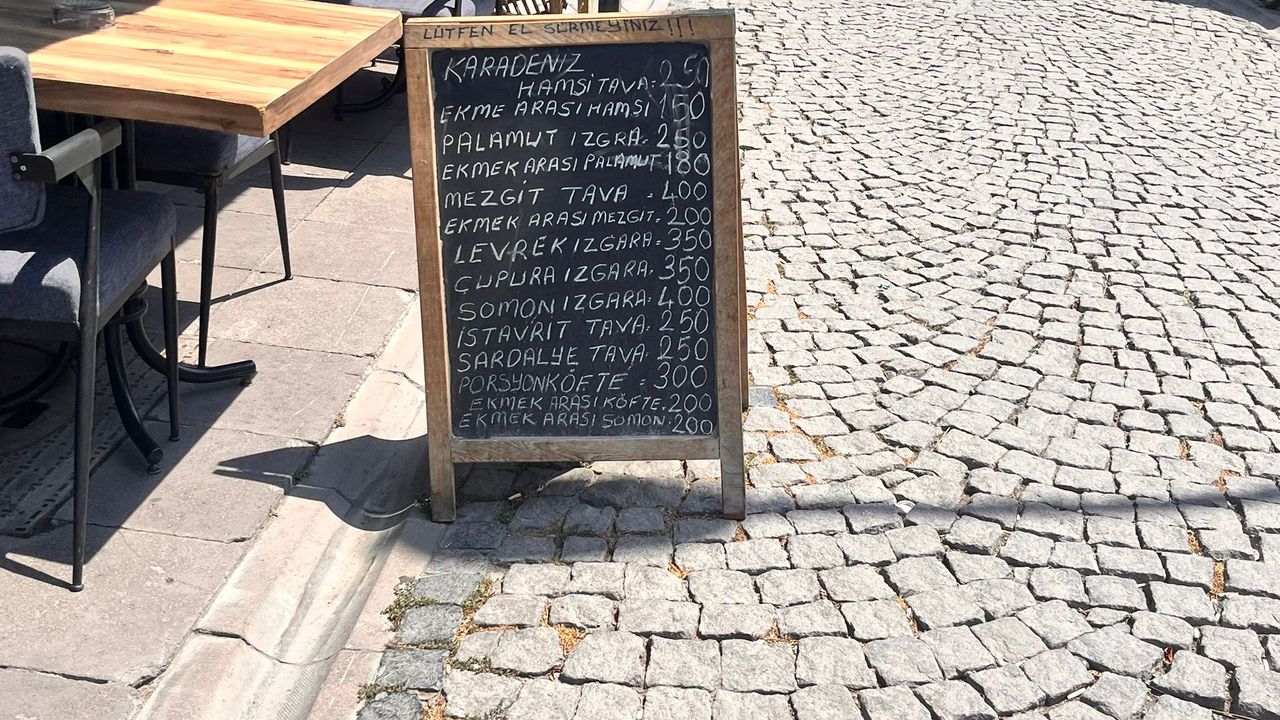 LÜTFEN EL SÜRMEYİNİZ!!!
KARADENİZ
HAMSİ TAVA=250
EKME ARASI HAMSİ 150
PALAMUT IZGRA=250
EKMEK ARASI PALAMUT 180
MEZGİT TAVA = 400
EKMEK ARASI MEZGİT=200
LEVREK IZGARA=350
ÇUPURA IZGARA=350
SOMON IZGARA=400
İSTAVRİT TAVA=250
SARDALYE TAVA=250
PORSYON KÖFTE = 300
EKMEK ARASI KÖFTE=200
EKMEK ARASI SOMON=200